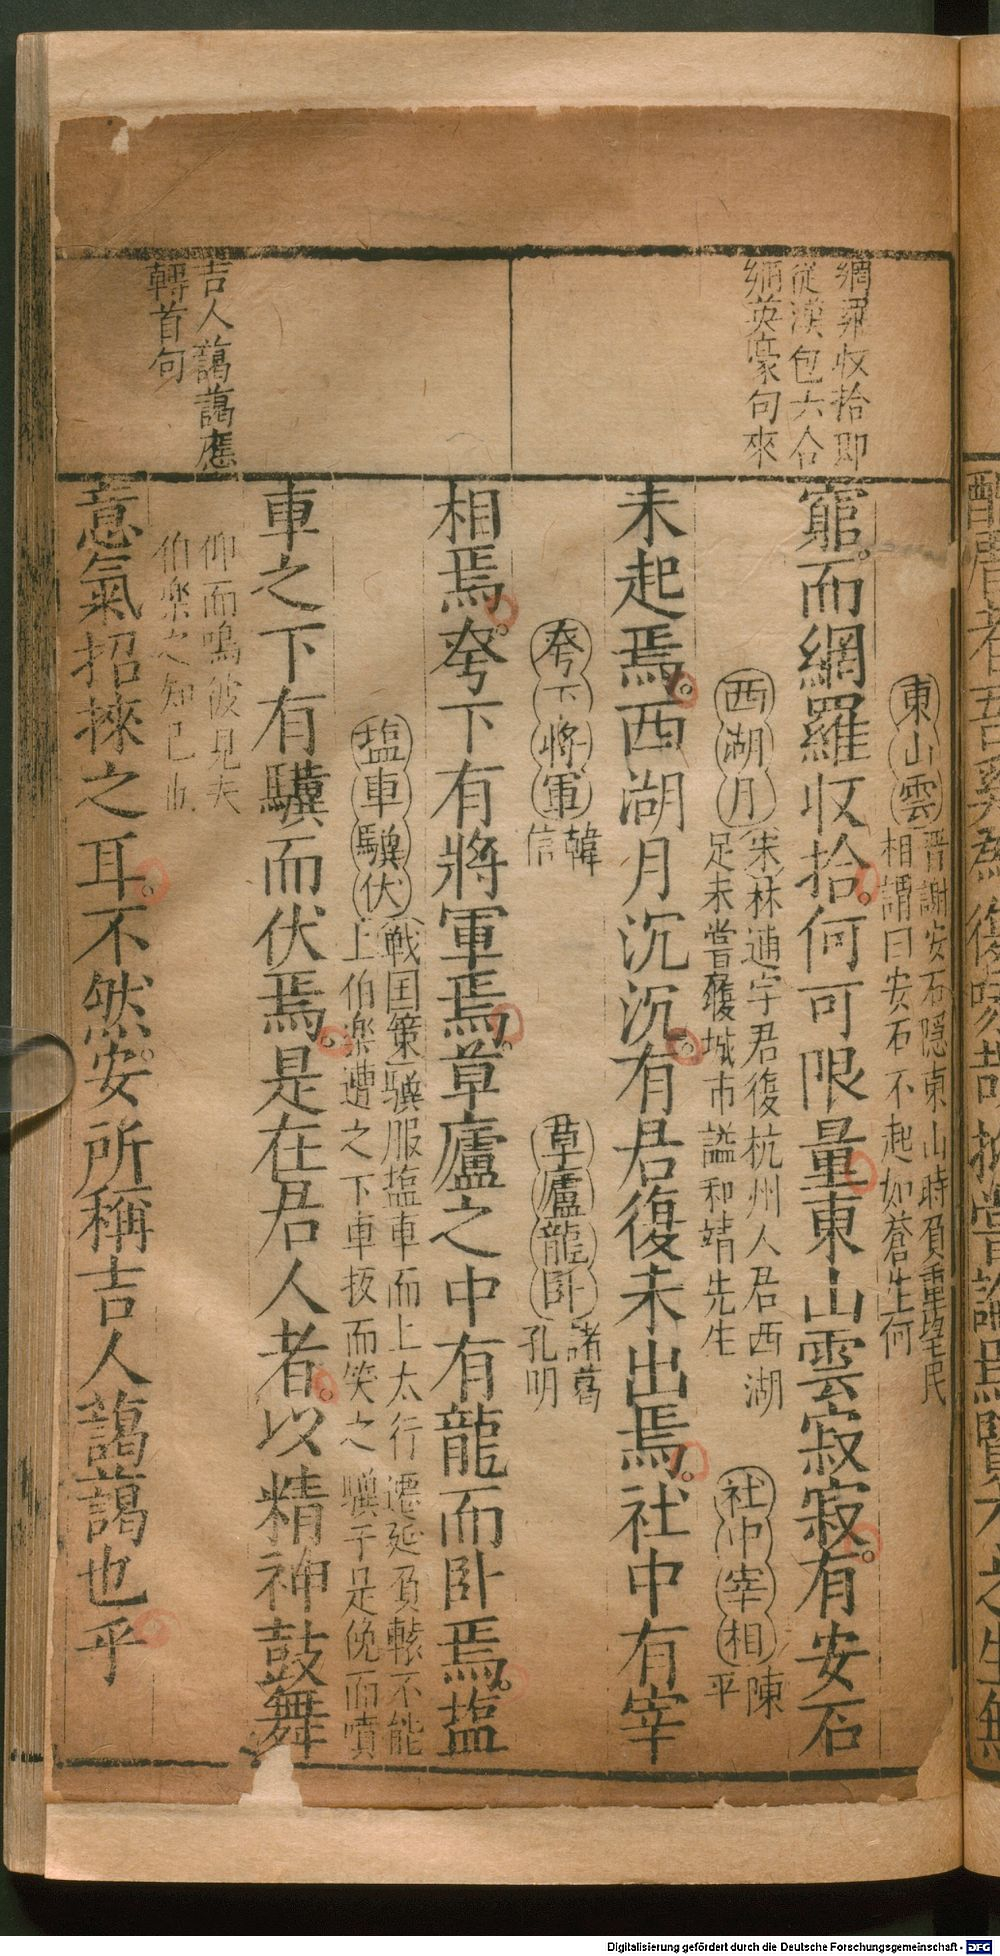 網羅收拾即
從漢包六合
網英豪句來
吉人藹藹應
轉首句
東山雲
晋謝安石隱東山時負重望民
相謂曰安石不起如蒼生何
窮而網羅收拾何可限量東山雲寂寂有安石
西湖月
宋林逋字君復杭州人居西湖
足未嘗履城市謚和靖先生
社中宰相
陳
平
未起焉西湖月沉沉有君復未出焉社中有宰
胯下將軍
韓
信
草廬龍卧
諸葛
孔明
相焉胯下有將軍焉草廬之中有龍而卧焉塩
塩車驥伏
戦国策驥服塩車而上太行遷延負轅不能
上伯楽遭之下車扳而笑之驥于是俛而噴
車之下有驥而伏焉是在君人者以精神鼓舞
仰而鳴彼見夫
伯楽之知己也
意氣招徠之耳不然安所稱吉人藹藹也乎
Digitalisierung gefördert durch die Deutsche Forschungsgemeinschaft - DFG